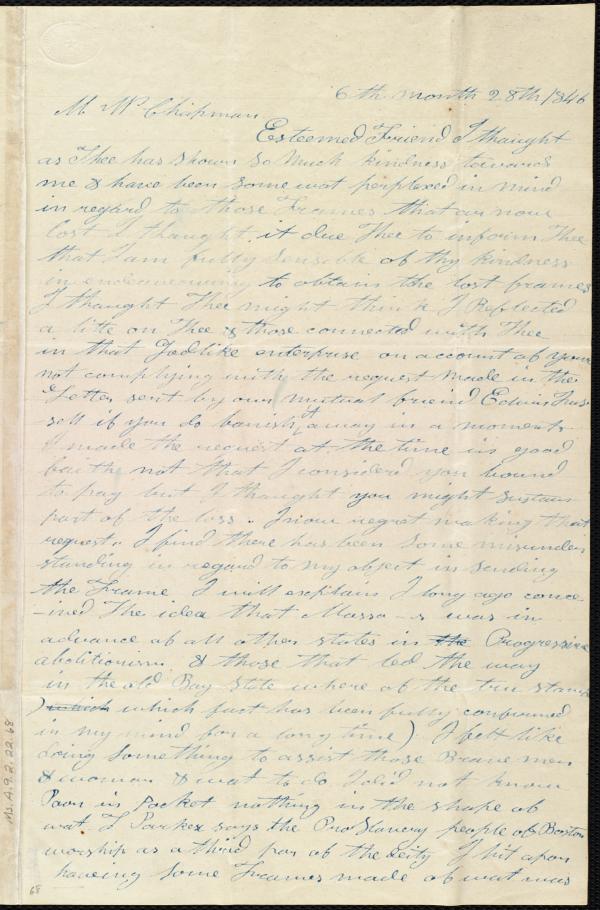 6th month 28th/1846
M W Chapman
Esteemed Friend I thought
as Thee has shown so Much kindness towards
me & have been some wat perplexed in mind
in regard to those Frames that are now
lost I thought it due Thee to inform Thee
that I am fully sensible of thy kindness
in endeavouring to obtain the lost frames
I thought Thee might think I Reflected
a litte on Thee & those connected with Thee
in that Godlike enterprise on account of your
not complying with the request Made in the
Letter sent by our mutual friend Edwin Thus
sell if you do banish it away in a moment
I made the request at the time in good
faith not that I considerd you bound
to pay but I thought you might sustain
part of the loss. I now regret making that
request. I find there has been some misunder
standing in regard to my object in sending
the Frame I will explain I long ago concei
-ived The idea that Massa--s was in
advance of all other states in the Progressive
abolitionism & those that led the way
in the old Bay State where of the true stamp
) which which fact has been fully confirmed
in my mind for a long time) I felt like
doing something to assist those Brave men
& woman & wat to do I did not know
Poor in Pocket nothing in the shape of
wat T Parker says the ProSlavery people of Boston
worship as a third par of the Deity I hit apon
haveing some Frames made of wat was
Ms.A.9.2.22.68
68